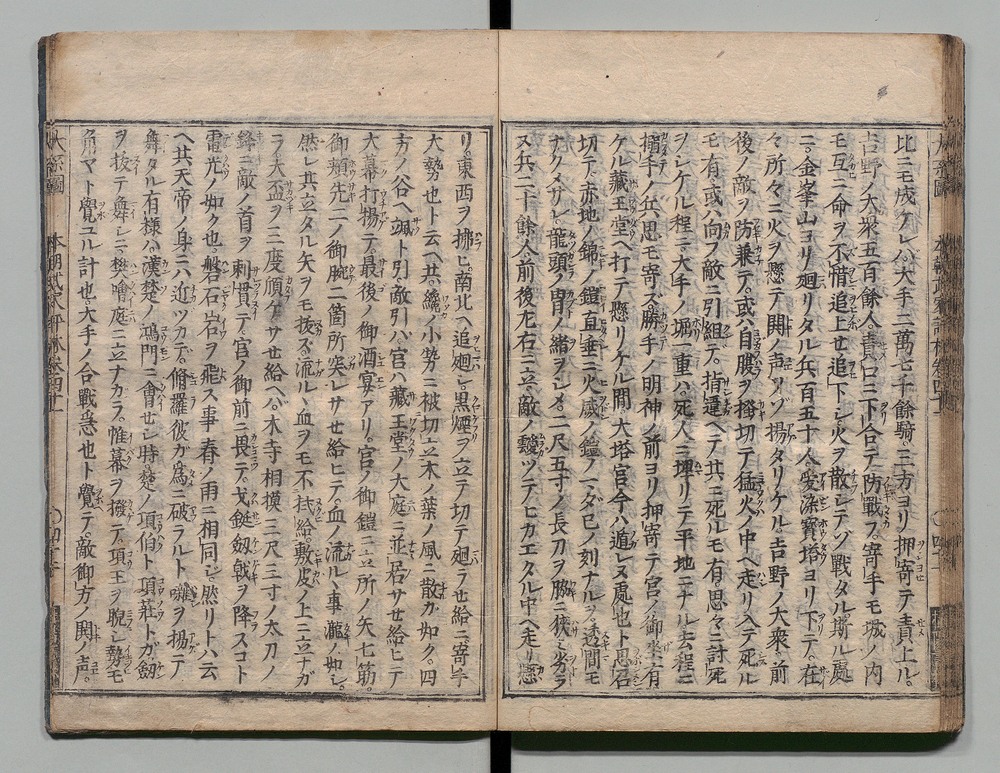 比ニモ成ケレハ大手ニ萬七千餘騎三方ヨリ押寄テ責上ル
吉野ノ大衆五百餘人責口ニ下合テ防戰フ寄手モ城ノ内
モ互ニ命ヲ不惜追上セ追下シ火ヲ散シテゾ戰タル斯ル處
ニ金峯山ヨリ廻リタル兵百五十人愛染寳塔ヨリ下テ在
々所々ニ火ヲ懸テ鬨ノ声ヲゾ揚タリケル吉野ノ大衆前
後ノ敵ヲ防兼テ或ハ自腹ヲ掻切テ猛火ノ中ヘ走リ入テ死ル
モ有或ハ向フ敵ニ引組テ指違ヘテ共ニ死ルモ有思々ニ討死
ヲシケル程ニ大手ノ堀一重ハ死人ニ埋リテ平地ニナル去程ニ
搦手ノ兵思モ寄ズ勝手ノ明神ノ前ヨリ押寄テ宮ノ御坐有
ケル藏王堂ヘ打テ懸リケル間大塔宮今ハ遁レヌ處也ト思召
切テ赤地ノ錦ノ鎧直垂ニ火威ノ鎧ノマダ巳ノ刻ナルヲ透間モ
ナクメサレ龍頭ノ冑ノ緒ヲシメ二尺五寸ノ長刀ヲ脇ニ挾ミ劣ラ
又兵二十餘人前後左右ニ立敵ノ靉ツテヒカエタル中ヘ走リ懸
リ東西ヲ拂ヒ南北ヘ追廻シ黒煙ヲ立テ切テ廻ラセ給ニ寄手
大勢也ト云ヘ共纔ノ小勢ニ被切立木ノ葉ノ風ニ散カ如ク四
方ノ谷ヘ颯ト引敵引ハ宮ハ藏王堂ノ大庭ニ並居サセ給ヒテ
大幕打揚テ最後ノ御酒宴アリ宮ノ御鎧ニ立所ノ矢七筋
御頬先二ノ御腕二箇所突レサセ給ヒテ血ノ流ル事瀧ノ如シ
然レ共立タル矢ヲモ拔ズ流ルヽ血ヲモ不拭給敷皮ノ上ニ立ナガ
ラ大盃ヲ三度傾ケサセ給ヘバ木寺相摸三尺三寸ノ太刀ノ
鋒ニ敵ノ首ヲ刺貫テ宮ノ御前ニ畏テ戈鋋劔戟ヲ降スコト
電光ノ如ク也盤石岩ヲ飛ス事春ノ雨ニ相同シ然リトハ云
ヘ共天帝ノ身ニハ近ツカデ脩羅彼ガ為ニ破ラルト囃ヲ揚テ
舞タル有様ハ漢楚ノ鴻門ニ會セシ時楚ノ項伯ト項莊トガ劔
ヲ拔テ舞シニ樊噲庭ニ立ナカラ帷幕ヲ撥テ項王ヲ睨シ勢モ
角マト覺ユル計也大手ノ合戰急也ト覺テ敵御方ノ鬨ノ声
大系圖
本朝武家評林卷四十一